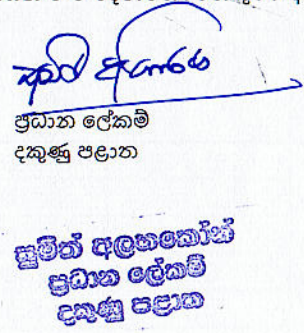 ප්‍රධාන ලේකම්
දකුණු පළාත
සුමිත් අලහකෝන්
ප්‍රධාන ලේකම්
දකුණු පළාත